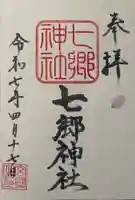 奉拝
七郷神社
七郷神社
令和七年四月十七日